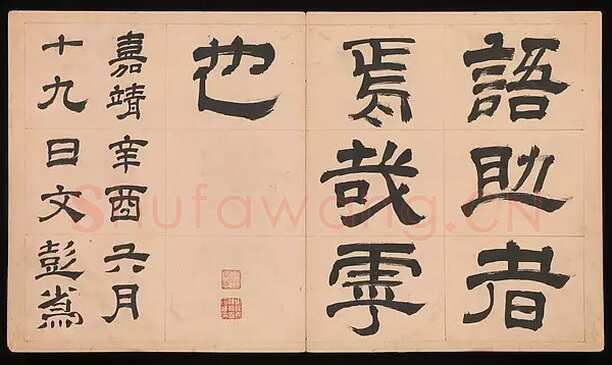 語助者
焉哉虖
也
嘉靖辛酉六月
十九日文彭
Shufawang.CN